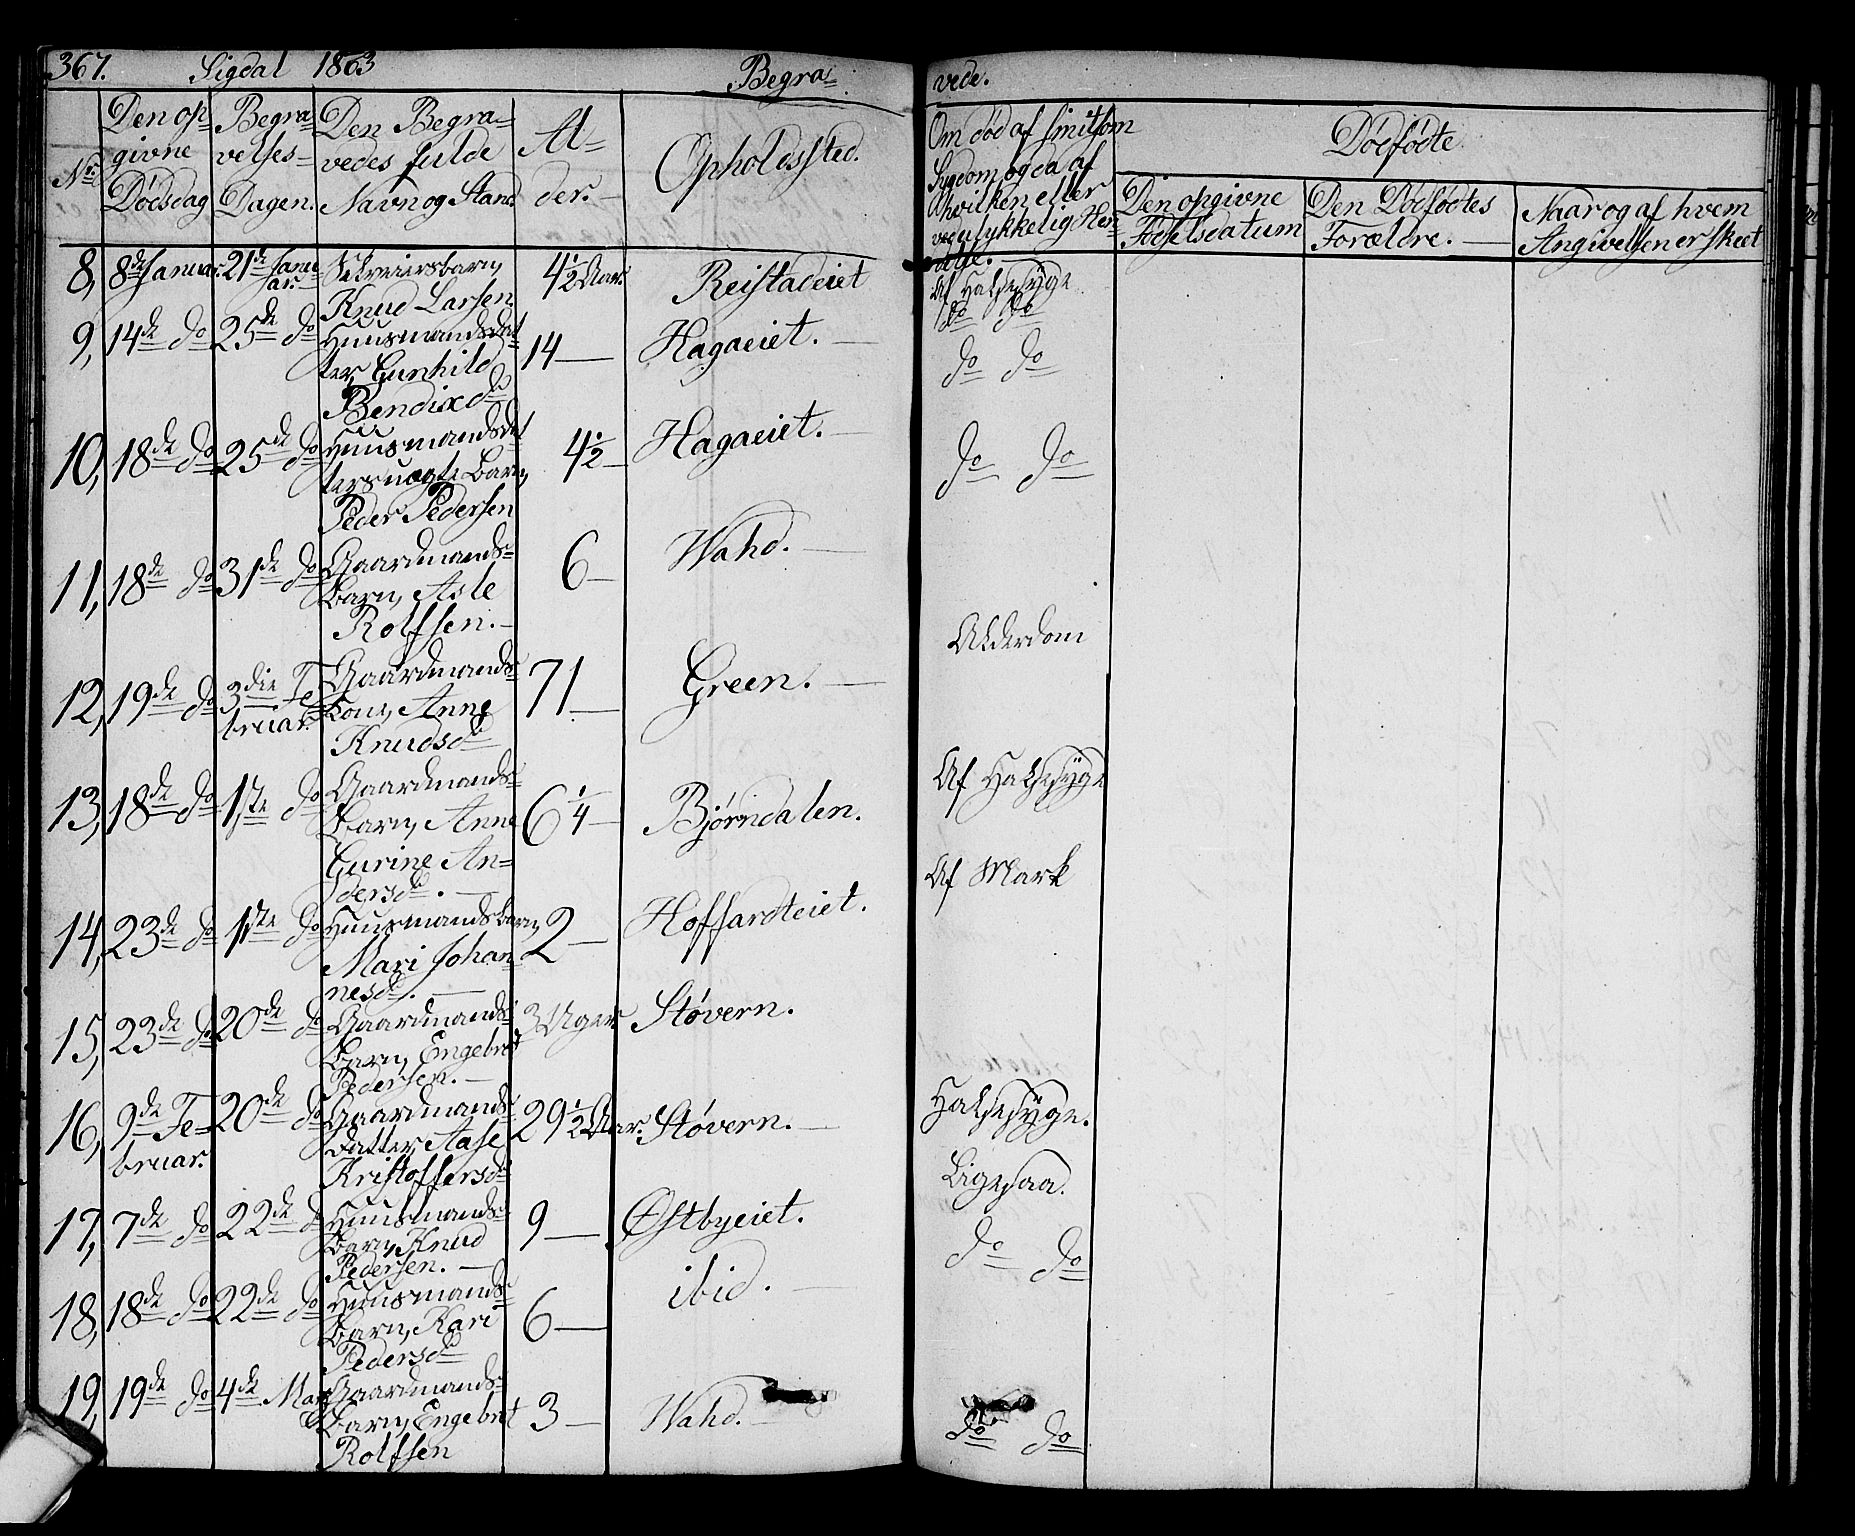 367. Sigdal 1863 Begra=
vede.
No.
Den op=
givne
Dødsdag
Begra=
velses=
Dagen.
Den Begra=
vedes fulde
Navn og Stand
Al=
der.
Opholdssted.
Om død af smitsom
Sygdom og da af
hvilken eller
ved ulykkelig Hæn=
delse.
Dødfødte.
Den opgivne
Fødselsdatum
Den Dødfødtes
Forældre.
Naar og af hvem
Angivelsen er skeet
8, 8de Januar. 21de Janu=
ar.
barn,
Knud Larsen
4 1/2 Aar.
Reistadeiet
Af Halssyge
do do
9, 14de do 25de do Huusmandsdat
ter, Gunhild
Bendixdr
14 —
Hagaeiet. —
do do
10, 18de do 25de do Huusmandsdat
ters uægte Barn,
Peder Pedersen
4 1/2 —
Hagaeiet. —
do do
11, 18de do 31de do Gaardmands=
barn, Asle
Rolfsen. —
6 —
Wahd. —
12, 19de do 3die Fe
bruar.
Gaardmands=
kone, Anne
Knudsdr
71 —
Green. —
Alderdom
13, 18de do 1ste do Gaardmands=
barn, Anne
Gurine An=
dersdr. —
6 1/4 —
Bjørndalen.
Af Halssyge
14, 23de do 1ste do Huusmandsbarn,
Mari Johan=
nesdr. —
2 —
Hoffardteiet.
Af Mark
15, 23de do 20de do Gaardmands=
barn, Engebret
Pedersen. —
3 Uger
Støvern.
16, 9de Fe=
bruar.
20de do Gaardmands=
datter, Aase
Kristoffersdr
29 1/2 Aar.
Støvern. —
Halssyge.
17, 7de do 22de do Huusmands=
barn, Knud
Pedersen. —
9 —
Østbyeiet.
Ligesaa.
18, 18de do 22de do Huusmands=
barn, Kari
Pedersdr
6 —
ibid. —
do do
19, 19de do 4de Mar Gaardmands=
barn, Engebret
Rolfsen
3 —
Wahd. —
do do